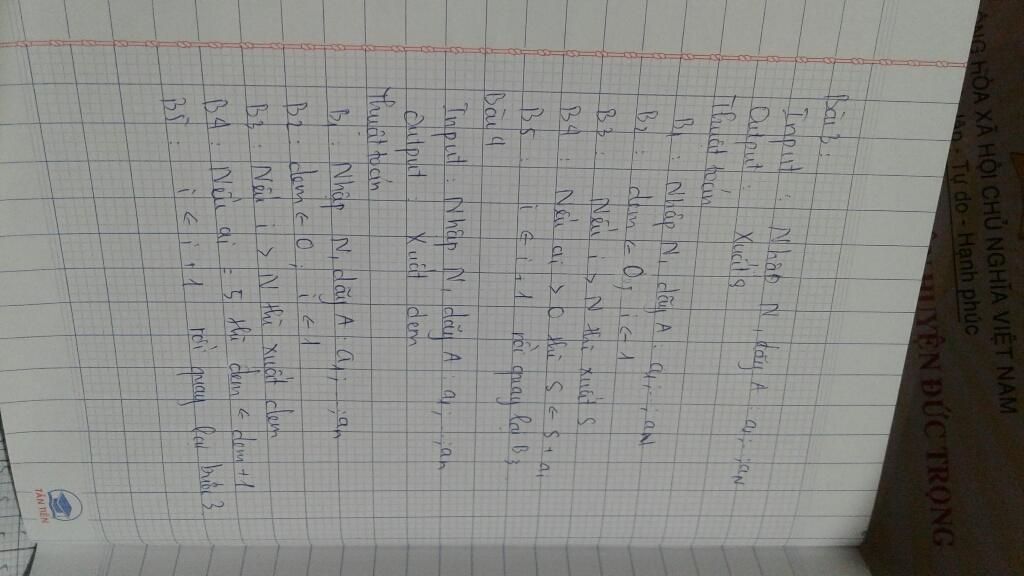 CỘNG HÒA XÃ HỘI CHỦ NGHĨA VIỆT NAM
lập - Tự do - Hạnh phúc
HUYỆN ĐỨC TRỌNG
Bài 3:
Input : Nhập N, dãy A : a1;...;aN
Output : Xuất S
Thuật toán
B1 : Nhập N, dãy A : a1;...;aN
B2 : dem ← 0; i ← 1
B3 : Nếu i > N thì xuất S
B4 : Nếu ai > 0 thì S ← S + ai
B5 : i ← i + 1 rồi quay lại B3
Bài 4
Input : Nhập N, dãy A : a1;...;an
Output : Xuất dem
Thuật toán
B1 : Nhập N, dãy A : a1;...;an
B2 : dem ← 0; i ← 1
B3 : Nếu i > N thì xuất dem
B4 : Nếu ai = 5 thì dem ← dem + 1
B5 : i ← i + 1 rồi quay lại bước 3
TÂN TIẾN